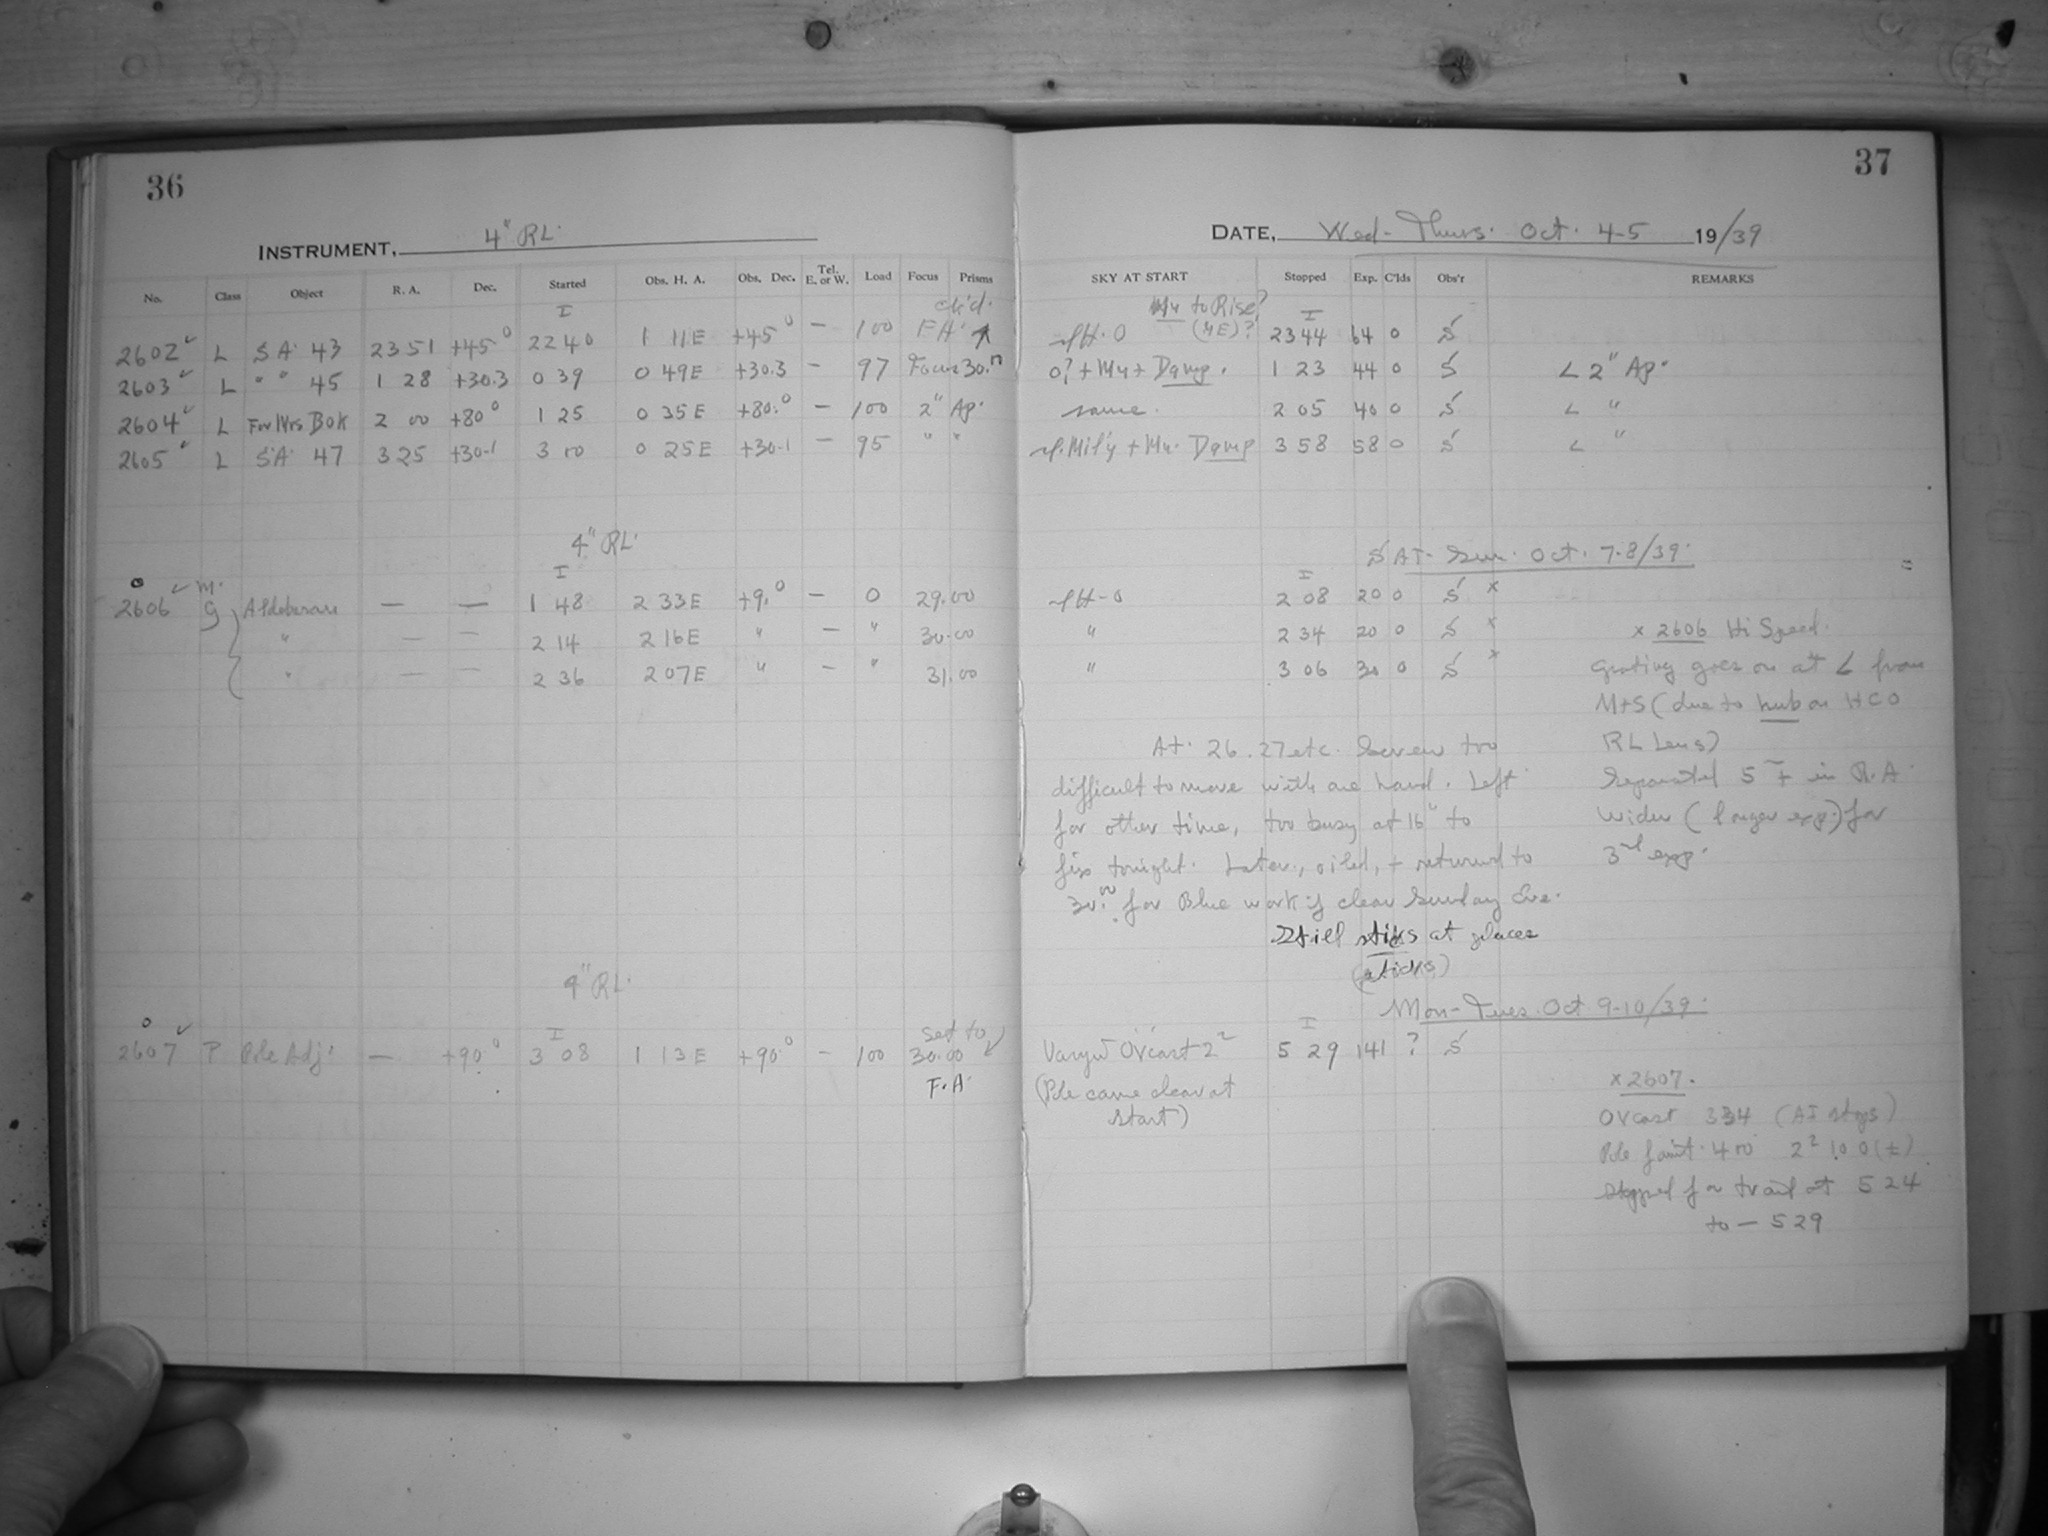 36
INSTRUMENT, 4" RL.
No. Class Object R. A. Dec. Started Obs. H. A. Obs. Dec. Tel. E. or W. Load Focus Prisms
I ck'd.
2602 L SA 43 2351 +45° 2240 1 11E +45° — 100 FA.
2603 L " " 45 1 28 +30.3 0 39 0 49E +30.3 — 97 Focus 30.
2604 L For Mrs Bok 2 00 +80° 1 25 0 35E +80.° — 100 2" Ap.
2605 L SA 47 3 25 +30.1 3 10 0 25E +30.1 — 95 " "
4" RL.
I
2606 M. G Aldebaran — — 1 48 2 33E +9.° — 0 29.00
" — — 2 14 2 16E " — " 30.00
" — — 2 36 2 07E " — " 31.00
4" RL.
I Set to
2607 P Pole Adj. — +90° 3 08 1 13E +90.° — 100 30.00
F.A.
37
DATE, Wed-Thurs. Oct. 4-5 19/39
SKY AT START Stopped Exp. C'lds Obs'r REMARKS
to Rise? I
H.0 (4E)? 2344 64 0 S
0? + My + Damp. 1 23 44 0 S < 2" Ap.
same. 2 05 40 0 S < "
+ My. Damp 3 58 58 0 S < "
SAT- Sun. Oct. 7-8/39.
I
H-0 2 08 20 0 S x
" 2 34 20 0 S x
" 3 06 30 0 S x
x 2606 Hi Speed.
Grating goes on at < from
M+S (due to hub on HCO
RL Lens)
Separated 5 in R.A.
wider (longer exp.) for
3rd exp.
At 26. 27 etc. Screw too
difficult to move with one hand. Left
for other time, too busy at 16" to
fix tonight. Later, oiled, + returned to
30.00 for Blue work if clear Sunday Eve.
Still sticks at places
(sticks)
Mon-Tues. Oct 9-10/39.
I
OVcast 2² 5 29 141 ? S
(Pole came clear at
start)
x 2607.
OVcast 334 (AI stops)
Pole faint. 400 2² 10 0(±)
stopped for trail at 5 24
to — 529